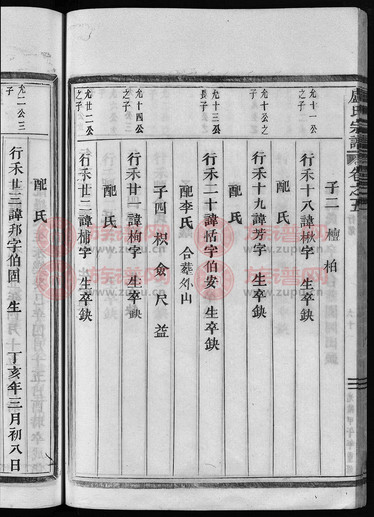 盧氏宗譜
卷之五
子二 檀 柏
允十一公之子
行禾十八諱楸字 生卒缺
配氏
允十公之子
行禾十九諱芳字 生卒缺
配氏
允十三公長子
行禾二十諱恬字伯安 生卒缺
配李氏 合葬外山
子四 枳 僉 尺 益
允十四公之子
行禾廿一諱枸字 生卒缺
配氏
允廿二公之子
行禾廿二諱楠字 生卒缺
配氏
允二公三子
行禾廿三諱邦字伯固 生 丁亥年三月初八日
族谱网
www.zupu.cn